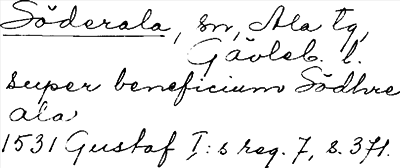 Söderala, sn, Ala tg,
Gävleb. l.
super beneficium Södhre
ala
1531 Gustaf I:s reg. 7, s. 371.